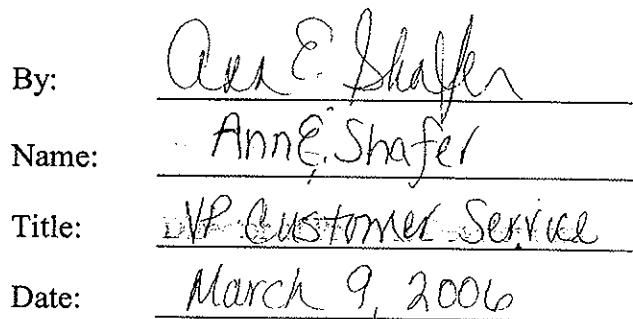 By: Ann E. Shafer
Name: Ann E. Shafer
Title: VP Customer Service
Date: March 9, 2006